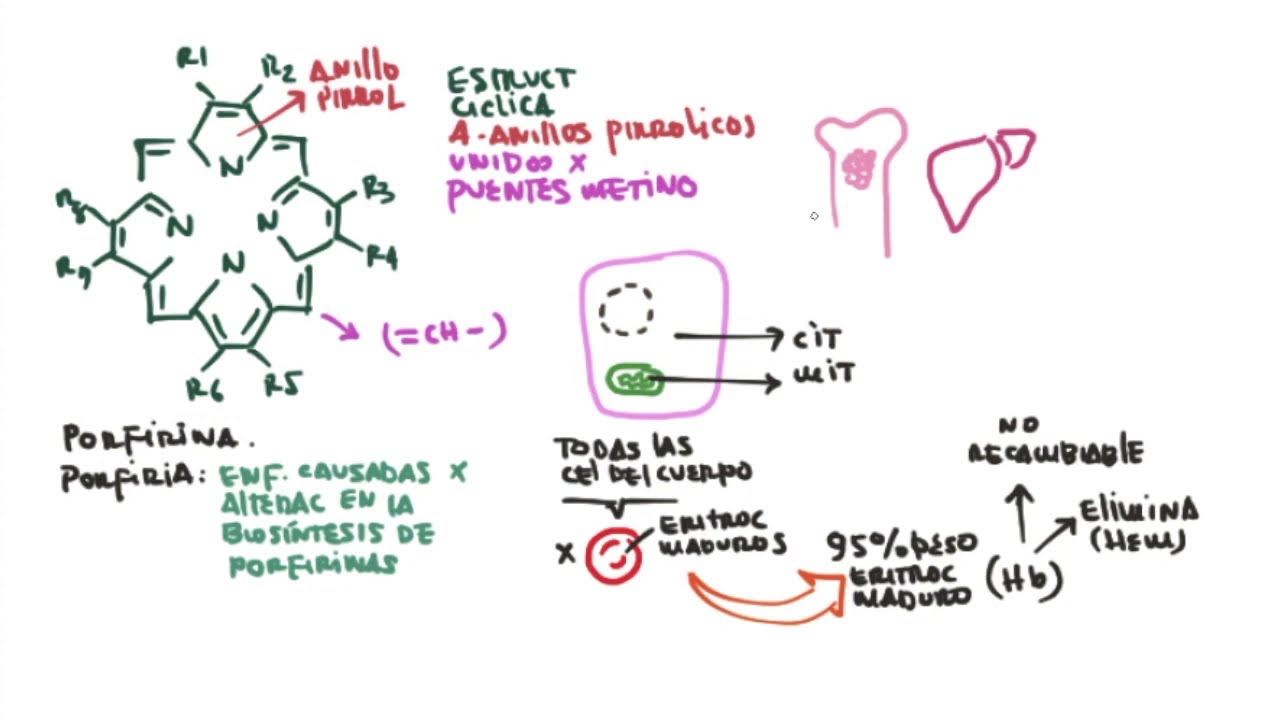 R1
R2
ANILLO
PIRROL
ESTRUCT
CICLICA
4-ANILLOS PIRROLICOS
UNIDOS X
PUENTES METINO
N
R8
N
N
R3
R4
R9
N
(=CH-)
R6
R5
CIT
MIT
PORFIRINA.
PORFIRIA: ENF. CAUSADAS X
ALTERAC EN LA
BIOSÍNTESIS DE
PORFIRINAS
TODAS LAS
CEL DEL CUERPO
X
ERITROC
MADUROS
95% PESO
ERITROC
MADURO
(Hb)
NO
RECAMBIABLE
ELIMINA
(HEM)